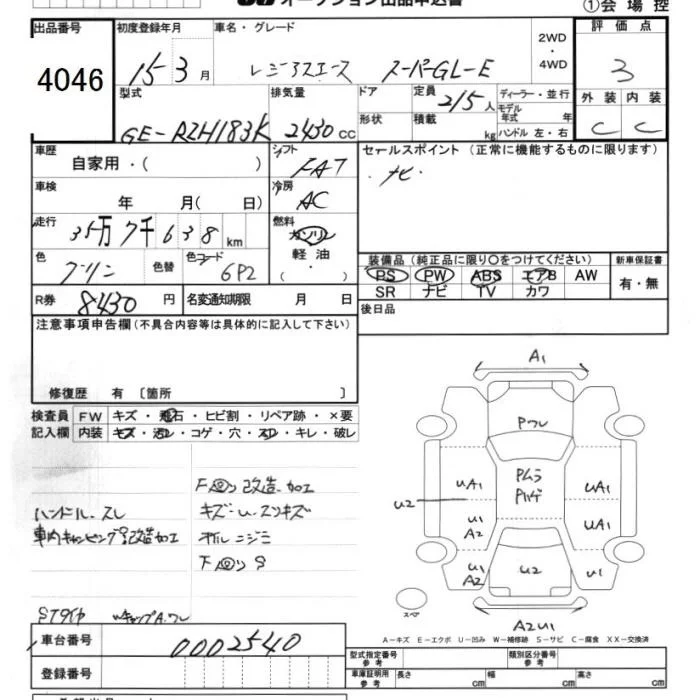 オークション出品申込書
①会場控
出品番号 4046
初度登録年月 15 3月
車名・グレード レジアスエース スーパーGL-E
2WD・4WD
評価点 3
外装 内装
C C
型式 GE-RZH183K
排気量 2430cc
ドア
形状
定員 2/5人
積載 kg
ディーラー・並行
モデル年式 年
ハンドル 左・右
車歴 自家用・( )
シフト FAT
車検 年 月( 日)
冷房 AC
走行 35万7千638km
燃料 ガソリン
軽油
( ・ )
色 グリン 色替
色コード 6P2
R券 8430円
名変通知期限 月 日
セールスポイント(正常に機能するものに限ります)
・ナビ
装備品(純正品に限り〇をつけてください)
PS PW ABS エアB AW
SR ナビ TV カワ
新車保証書
有・無
後日品
注意事項申告欄(不具合内容等は具体的に記入して下さい)
修復歴 有〔箇所 〕
検査員記入欄
FW キズ・飛石・ヒビ割・リペア跡・×要
内装 キズ・汚レ・コゲ・穴・スレ・キレ・破レ
改造.加工
ハンドル.スレ
キズ・U・スリキズ
車内キャンピング改造加工
オイルニジミ
STタイヤ
車台番号 0002540
登録番号
A1
Pワレ
PムラPハゲ
UA1 UA1
U2
U1 A2 UA1
U1 A2 U2 U1
スペア
A2U1
A-キズ E-エクボ U-凹み W-補修跡 S-サビ C-腐食 XX-交換済
型式指定番号 参考
類別区分番号 参考
車庫証明用 参考 長さ cm 幅 cm 高さ cm